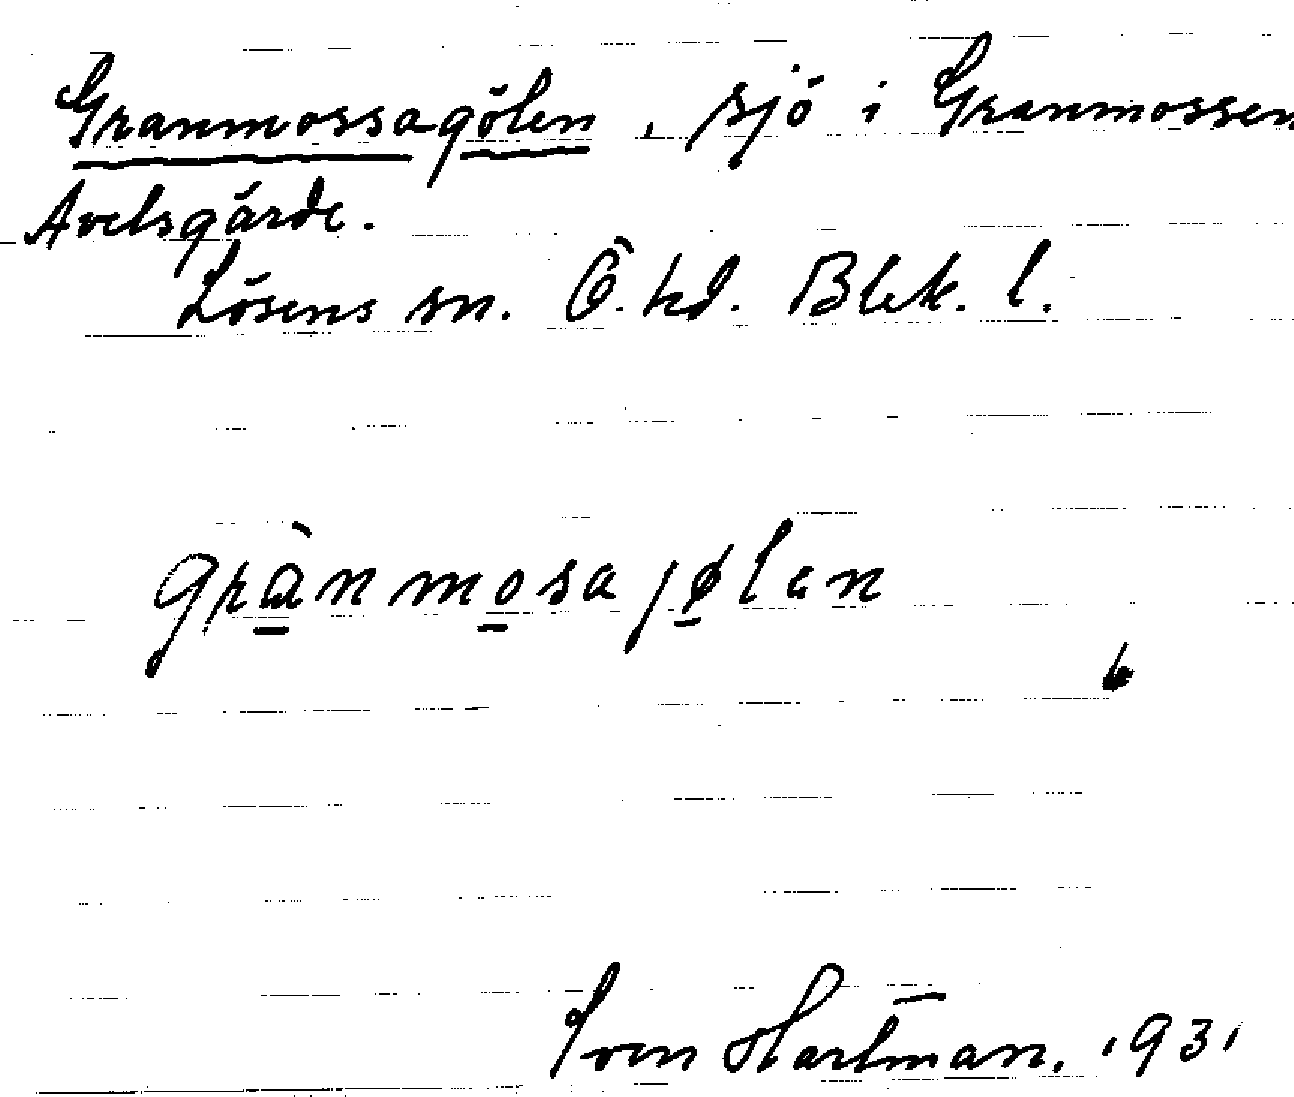 Granmossagölen, sjö i Granmossen
Avelsgärde.
Lösens sn. Ö. hd. Blek. l.
grànmosajølen
Sven Hartman. 1931